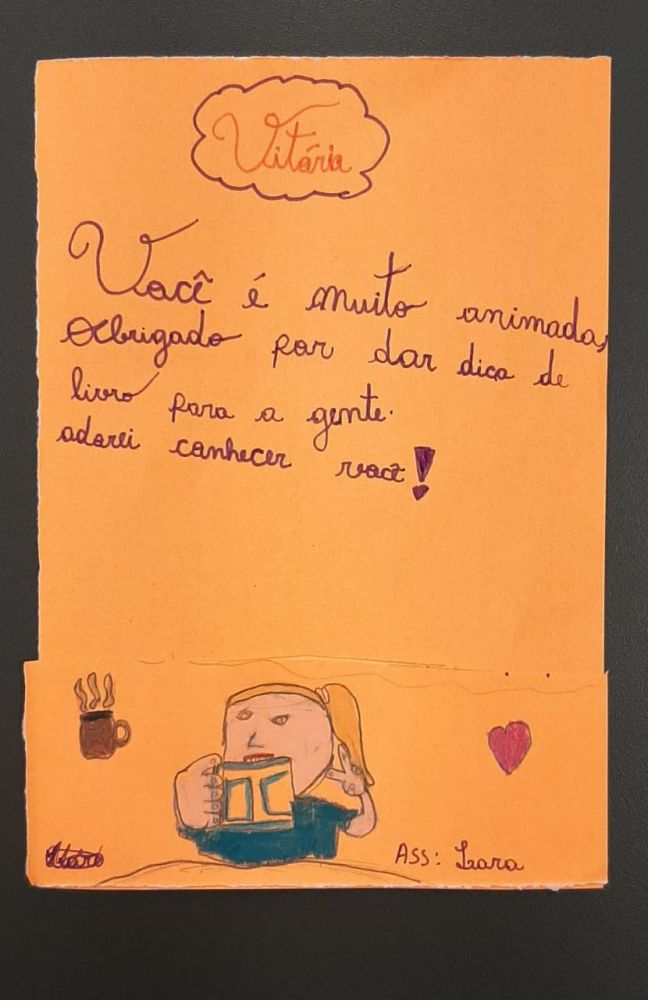 Vitória
Você é muito animada,
Obrigado por dar dica de
livro para a gente.
adorei conhecer você!
TC
Ass: Lara